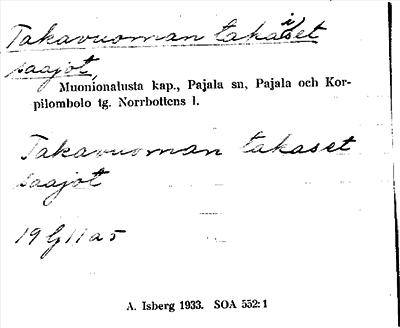 Takavuoman takaiset
saajot,
Muonionalusta kap., Pajala sn, Pajala och Kor-
pilombolo tg. Norrbottens l.
Takavuoman takaset
saajot
19 G 11 a 5
A. Isberg 1933. SOA 552:1